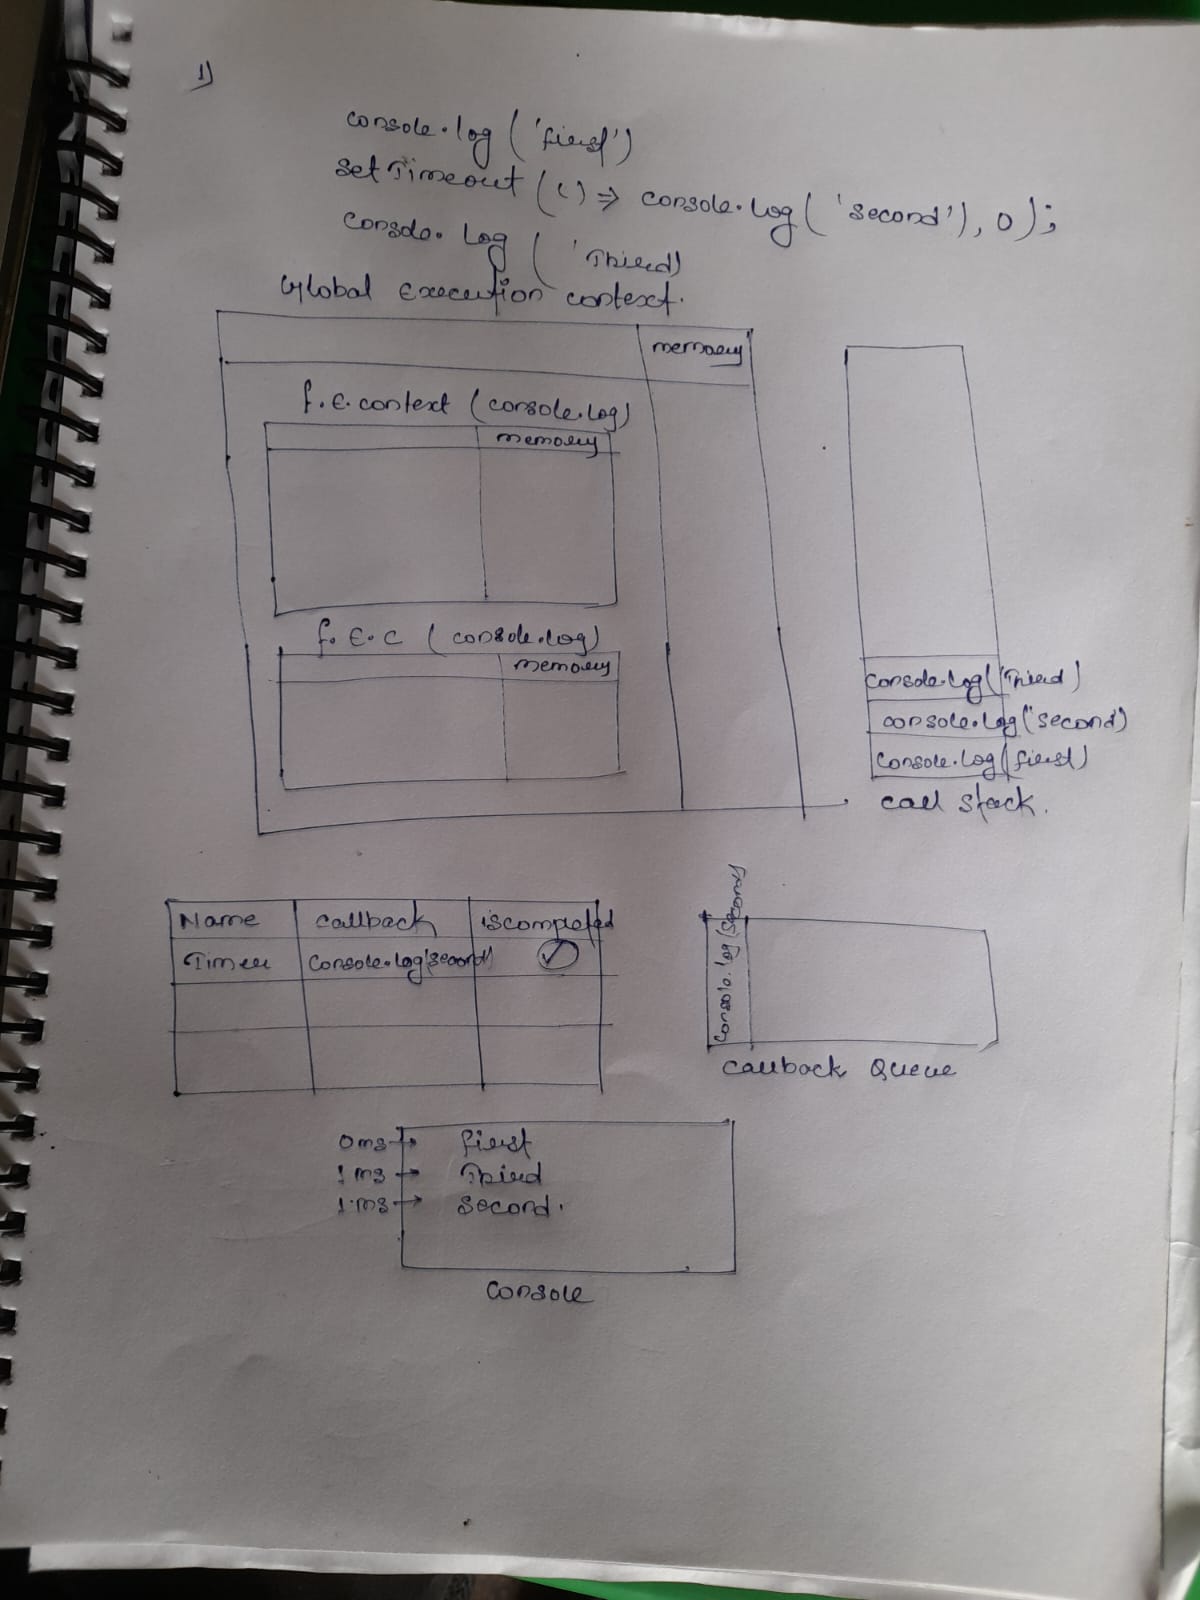 1)
console.log ('first')
setTimeout (() => console.log('second'), 0);
console.log ('Third)
Global execution context.
memory
f.E.context (console.log)
memory
f.E.C (console.log)
memory
console.log('Third)
console.log('second)
console.log(first)
call stack.
Name callback iscompleted
Timer console.log(second)
console.log(second)
callback Queue
0ms→ first
1ms→ Third
1.ms→ second.
console